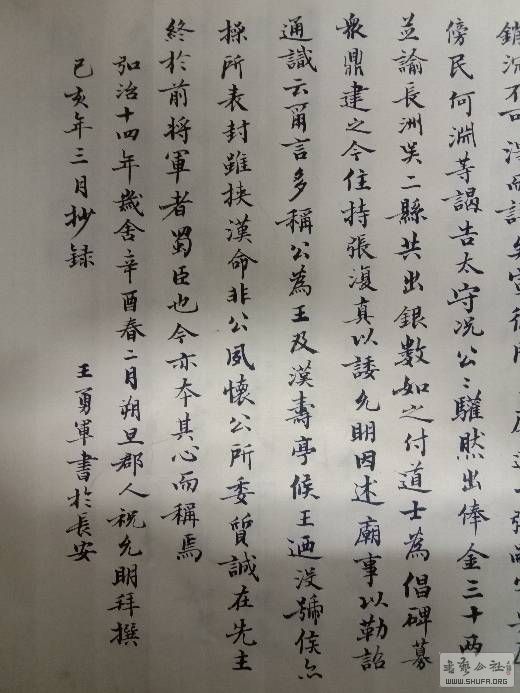 傍民何渊等謁告太守况公〻驩然出俸金三十两
並諭長洲吴二縣共出銀數如之付道士為倡碑募
衆鼎建之今住持張復真以諉允明因述廟事以勒詒
通識云爾言多稱公為王及漢壽亭侯王迺没號侯亦
操所表封雖挟漢命非公夙懷公所委質誠在先主
終於前将軍者蜀臣也今亦本其心而稱焉
弘治十四年歲舍辛酉春二月朔旦郡人祝允明拜撰
己亥年三月抄録 王勇軍書於長安
書藝公社
WWW.SHUFR.ORG